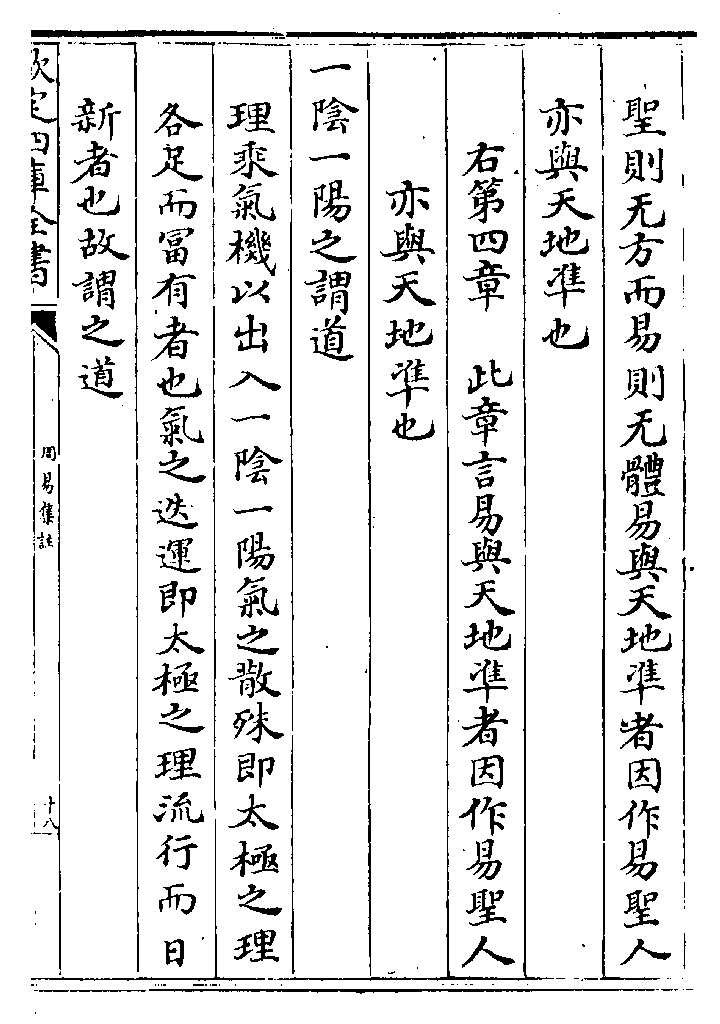 聖則无方而易則无體易與天地準者因作易聖人
亦與天地準也
右第四章 此章言易與天地準者因作易聖人
亦與天地準也
一陰一陽之謂道
理乘氣機以出入一陰一陽氣之散殊即太極之理
各足而冨有者也氣之迭運即太極之理流行而日
新者也故謂之道
欽定四庫全書
周易集註
十八